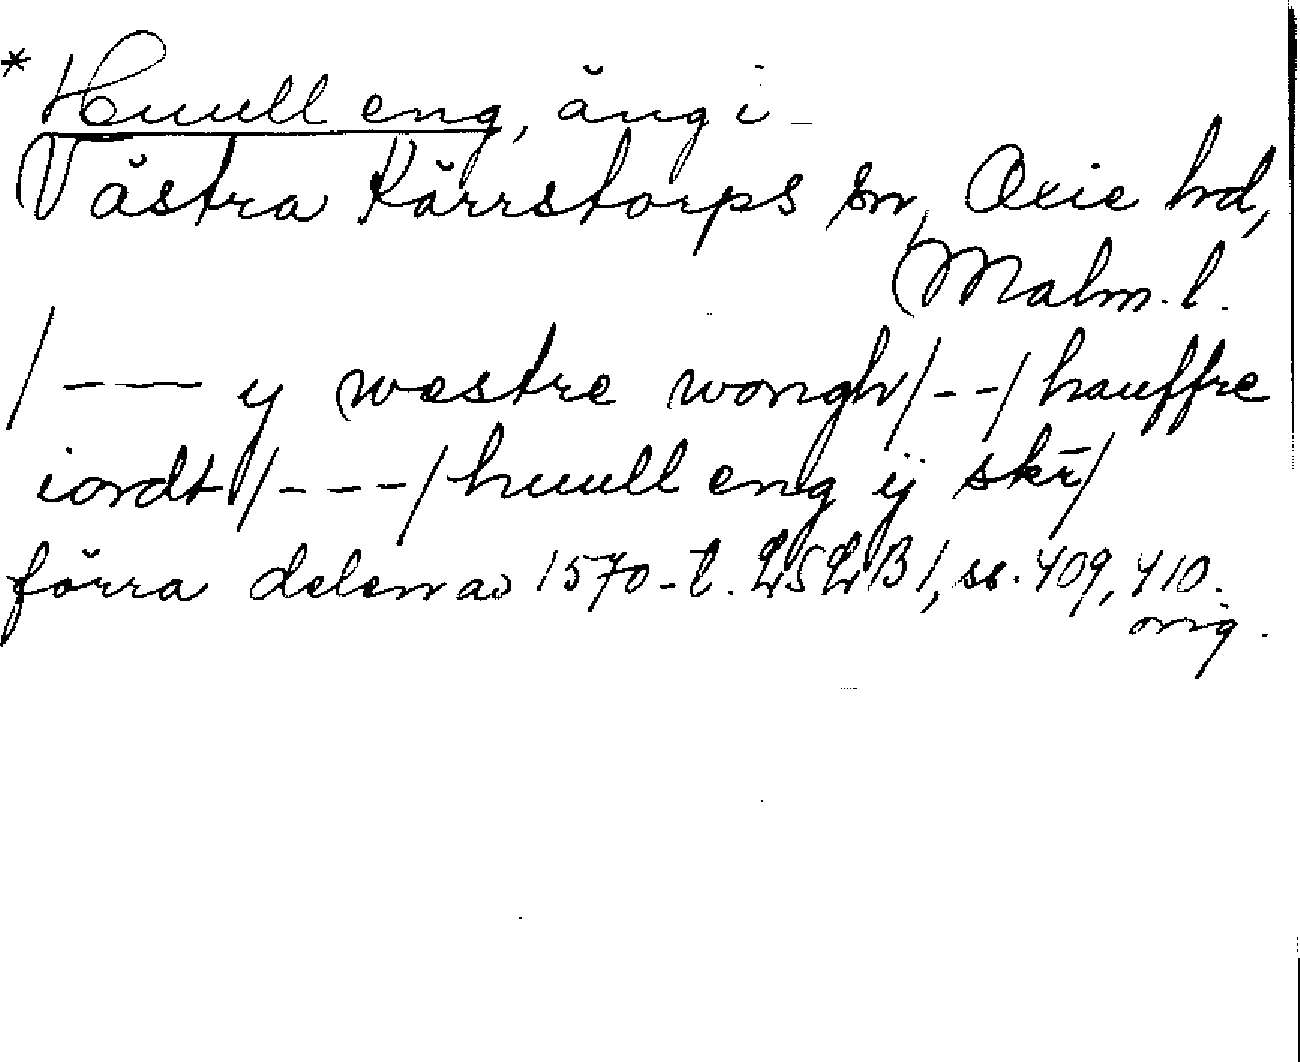 * Huull eng, äng i
Västra Kärrstorps sn, Oxie hd,
Malm. l.
/--- y westre wongh/--/hauffre
iordt/---/huull eng ij skr̄/
förra delen av 1570-t. LSLB1, ss. 409, 410.
orig.